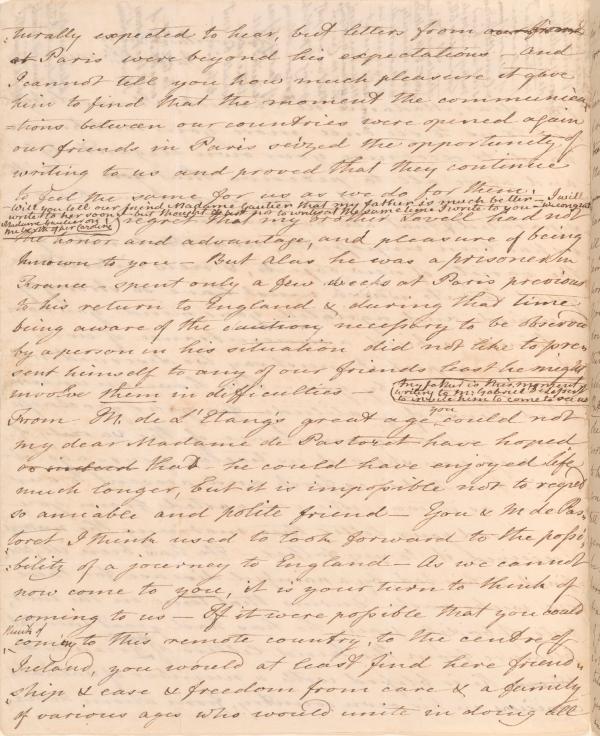 turally expected to hear, but letters from our friends
at Paris were beyond his expectations – And
I cannot tell you how much pleasure it gave
him to find that the moment the communica
=tions between our countries were opened again
our friends in Paris seized the opportunity of
writing to us and proved that they continue
to feel the same for us as we do for them.
Will you tell our friend Madame Gautier that my father is much better – I will
write to her soon – but thought it not to write at the same time I write to you – we congratulate
Madame on
the birth of her
I regret that my brother Lovell had not
the honor and advantage, and pleasure of being
known to you – But alas he was a prisoner in
France – spent only a few weeks at Paris previous
to his return to England & during that time
being aware of the caution necessary to be observed
by a person in his situation did not like to pre-
sent himself to any of our friends least he might
involve them in difficulties –
my father is this moment
writing to M. Gabriel
to invite him to come to see us
you
From M. de L'Etang's great age could not
my dear Madame de Pastoret have hoped
or indeed that he could have enjoyed life
much longer, but it is impossible not to regret
so amiable and polite friend – You & M de Pas
toret I think used to look forward to the possi
bility of a journey to England – As we cannot
now come to you, it is your turn to think of
coming to us – If it were possible that you could
think of
coming to this remote country, to the centre of
Ireland, you would at least find here friend
ship & ease & freedom from care & a family
of various ages who would unite in doing all